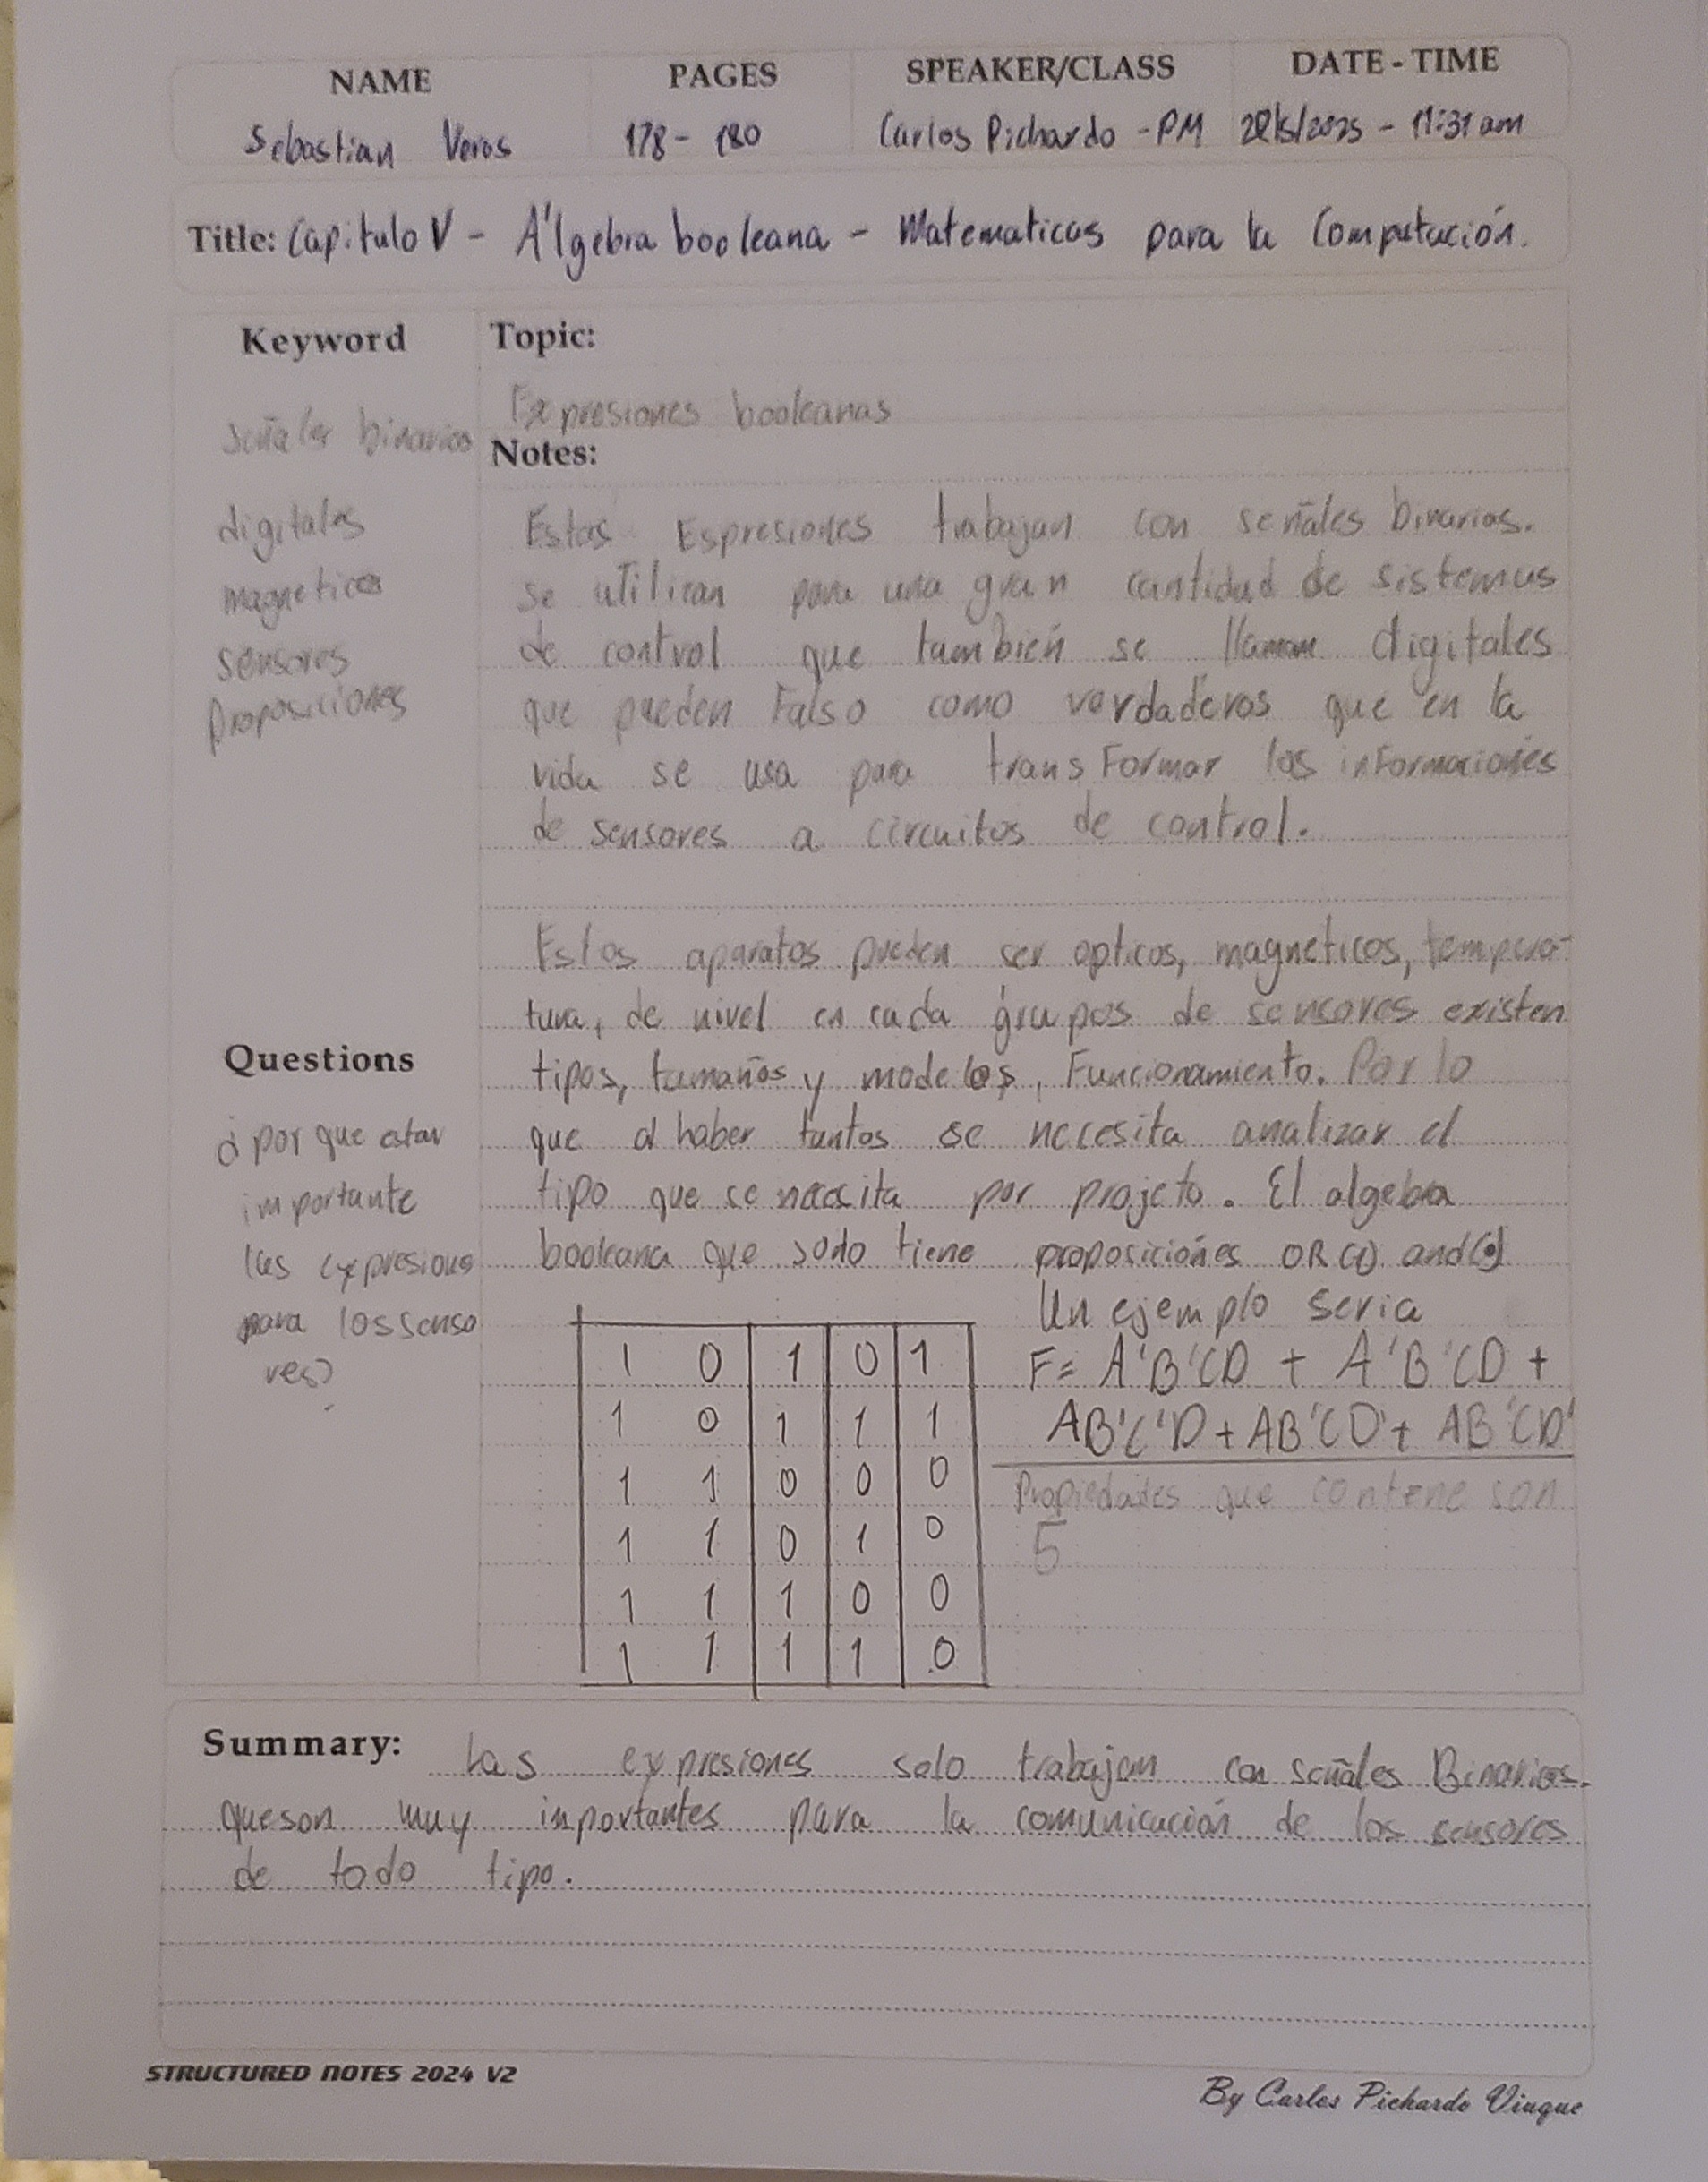 NAME PAGES SPEAKER/CLASS DATE - TIME
Sebastian Veras 178 - 180 Carlos Pichardo - PM /5/2025 - 11:31 am
Title: Capitulo V - Álgebra booleana - Matematicas para la Computación.
Keyword
señales binarias
digitales
magneticos
sensores
Proposiciones
Questions
¿por que estar
importante
las expresiones
para los senso
res?
Topic:
Expresiones booleanas
Notes:
Estas Espresiones trabajan con señales binarias.
se utilizan para una gran cantidad de sistemas
de control que también se llaman digitales
que pueden Falso como verdaderos que en la
vida se usa para transFormar las inFormaciones
de sensores a circuitos de control.
Estos aparatos pueden ser opticos, magneticos, tempera-
tura, de nivel en cada grupos de sensores existen
tipos, tamaños y modelos, Funcionamiento. Por lo
que al haber tantos se necesita analizar el
tipo que se necesita por projeto. El algebra
booleana que solo tiene proposiciónes OR (+) and (•)
Un ejemplo seria
F= A'B'CD + A'B'CD +
AB'C'D + AB'CD' + AB'CD'
Propiedades que contene son
5
1 0 1 0 1
1 0 1 1 1
1 1 0 0 0
1 1 0 1 0
1 1 1 0 0
1 1 1 1 0
Summary: Las expresiones solo trabajan con señales Binarias.
que son muy importantes para la comunicación de los sensores
de todo tipo.
STRUCTURED NOTES 2024 V2
By Carlos Pichardo Viuque